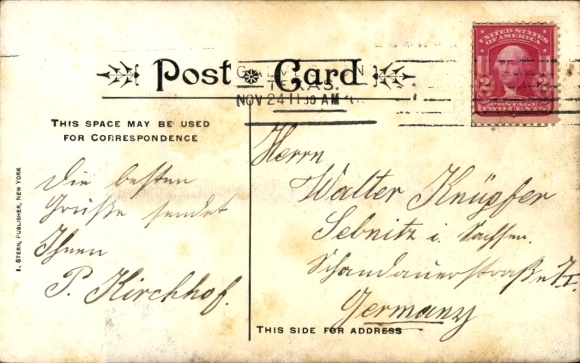 Post Card
TEXAS.
NOV 24 11 30 AM
UNITED STATES OF AMERICA
2 2
POSTAGE
THIS SPACE MAY BE USED
FOR CORRESPONDENCE
Die besten
Grüße sendet
Ihnen
P. Kirchhof.
Herrn
Walter Knüpfer
Sebnitz i. Sachsen.
Schandauerstraße
Germany
THIS SIDE FOR ADDRESS
I. STERN, PUBLISHER, NEW YORK